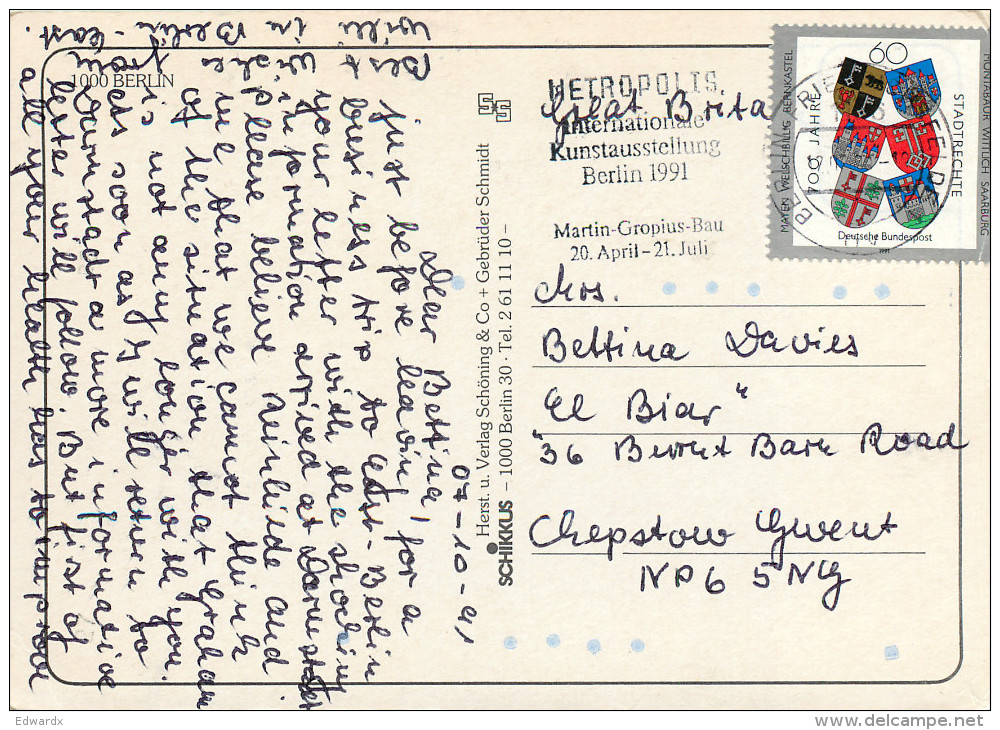 1000 BERLIN
07-10-91
Dear Bettina,
just before leaving for a
business trip to East-Berlin
your letter with the shocking
information arrived at Darmstadt
please believe Reinhilde and
me that we cannot think
of the situation that Graham
is not any longer with you.
As soon as I will return to
Darmstadt a more informative
letter will follow. But first of
all your health has to improve
Best
wishes
from
Willi in Berlin-East.
Herst. u. Verlag Schöning & Co + Gebrüder Schmidt
SCHIKKUS – 1000 Berlin 30 · Tel. 2 61 11 10 –
METROPOLIS.
Internationale
Kunstausstellung
Berlin 1991
Martin-Gropius-Bau
20. April - 21. Juli
60
700 JAHRE
STADTRECHTE
MAYEN WELSCHBILLIG BERNKASTEL
MONTABAUR WITTLICH SAARBURG
Deutsche Bundespost
Great Brita
Mrs.
Bettina Davies
"El Biar"
36 Burnt Barn Road
Chepstow Gwent
NP6 5NG
Edwardx
delcampe.net